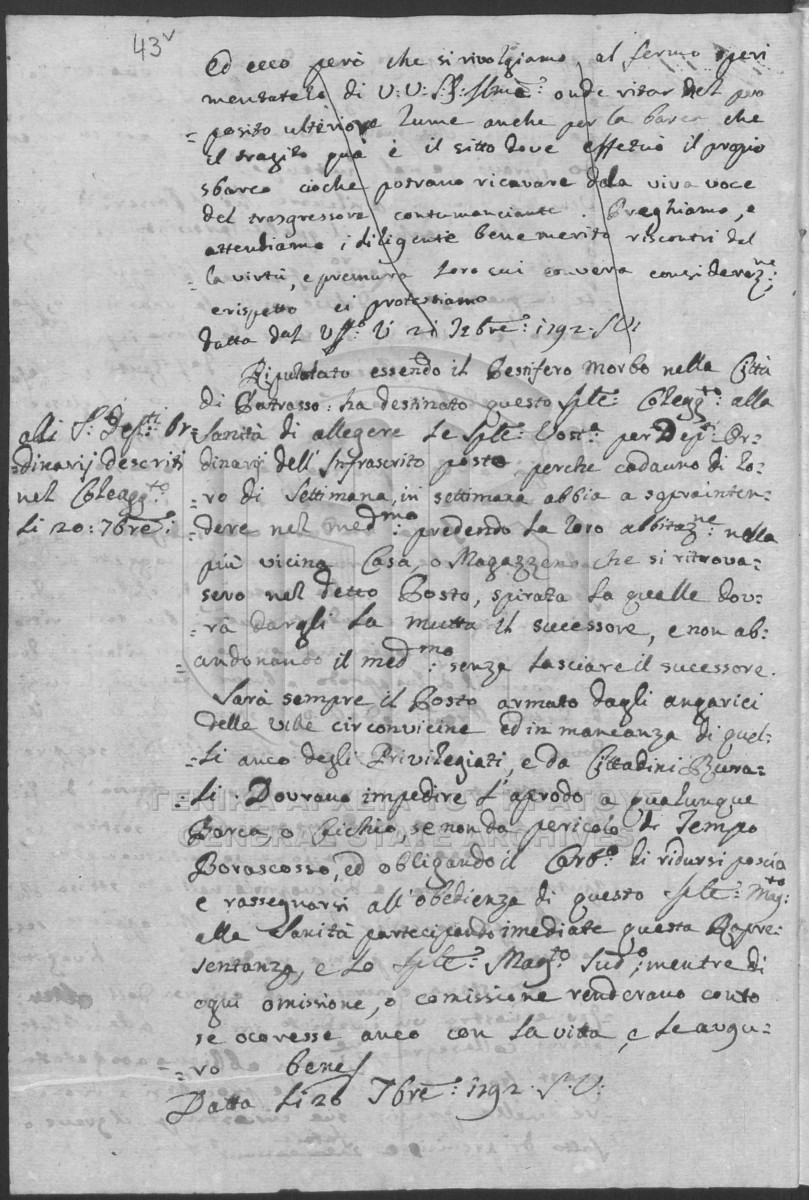 43v
Ed ecco però che si rivolgiamo al fermo speri
mentatela di V: V: S: S: Illme: onde ritar del pro
= posito ulteriore lume anche per la barca che
il tragito quà è il sitto dove effetuò il propio
sbarco cioche potrano ricavare dala viva voce
del trasgressore contumanciante. Preghiamo, e
attendiamo i diligenti benemerito riscontri del
= la virtù, e premura loro cui con vera considerazne:
e rispetto ci protestiamo
datta dal Uffo: li 21 7bre: 1792. S:V:
Riputato essendo il Pestifero Morbo nella Città
di Patrasso: ha destinato questo Sple: Coleggto: alla
Sanità di allegere le Sple: Vosta: per Depti: Or=
dinarij dell'Infrascrito posto perche cadauno di lo=
ro di settimana, in settimana abbia a soprainten=
= dere nel medmo: predendo la loro abbitazne: nella
più vicina Casa, o Magazzeno che si ritrova=
sero nel detto Posto, spirata la quelle dov=
= rà dargli la mutta il successore, e non ab=
= andonando il medmo: senza lasciare il successore.
Sarà sempre il Posto armato dagli angarici
delle ville circonvicine ed in mancanza di quel=
= li anco degli Privilegiati, e da Cittadini Rura=
= li. Dovrano impedire l'aprodo a qualunque
Barca o Pichio, se non da pericolo di Tempo
Borascosso, ed obligando il Carbo: di ridursi poscia
e rassegnarsi all'obedienza di questo Sple: Magto:
alla Sanità partecipando imediate questa Rapre=
sentanza, e lo Sple: Magto: Sudo: mentre di
ogni omissione, o comissione renderano conto
se ocoresse anco con la vitta, e le augu=
= ro bene
Datta li 20 7bre: 1792. S: V:
alli S: Depti: Or=
= dinarij descriti
nel Coleaggto:
li 20: 7bre:
ΓΕΝΙΚΑ ΑΡΧΕΙΑ ΤΟΥ ΚΡΑΤΟΥΣ
GENERAL STATE ARCHIVES